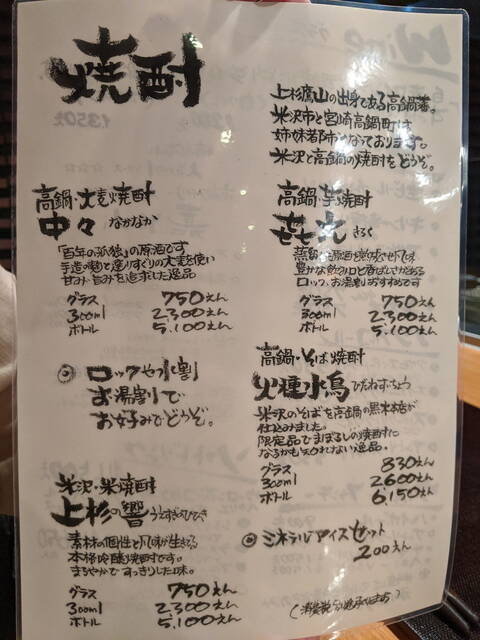 焼酎
上杉鷹山の出身である高鍋藩
米沢市と宮崎高鍋町は
姉妹都市となっております。
米沢と高鍋の焼酎をどうぞ。
高鍋・大麦焼酎
中々 なかなか
「百年の孤独」の原酒です
手造り麹と選りすぐりの大麦を使い
甘み・旨みを追求した逸品
グラス 750えん
300ml 2,300えん
ボトル 5,100えん
高鍋・芋焼酎
㐂六 きろく
豊かな飲み口と香ばしさがある
ロック、お湯割おすすめです
グラス 750えん
300ml 2,300えん
ボトル 5,100えん
◎ロックや水割
お湯割で
お好みでどうぞ。
高鍋・そば焼酎
火種水鳥 ひだねすいちょう
米沢のそばを高鍋の黒木本店が
仕込みました。
限定品でまぼろしの焼酎に
なるかも知れない逸品。
グラス 830えん
300ml 2,600えん
ボトル 6,150えん
米沢・米焼酎
上杉の響 うえすぎのひびき
素材の個性と風味が生きる
本格吟醸焼酎です。
まろやかですっきりした味。
グラス 750えん
300ml 2,300えん
ボトル 5,100えん
◎ミネラル・アイスセット
200えん